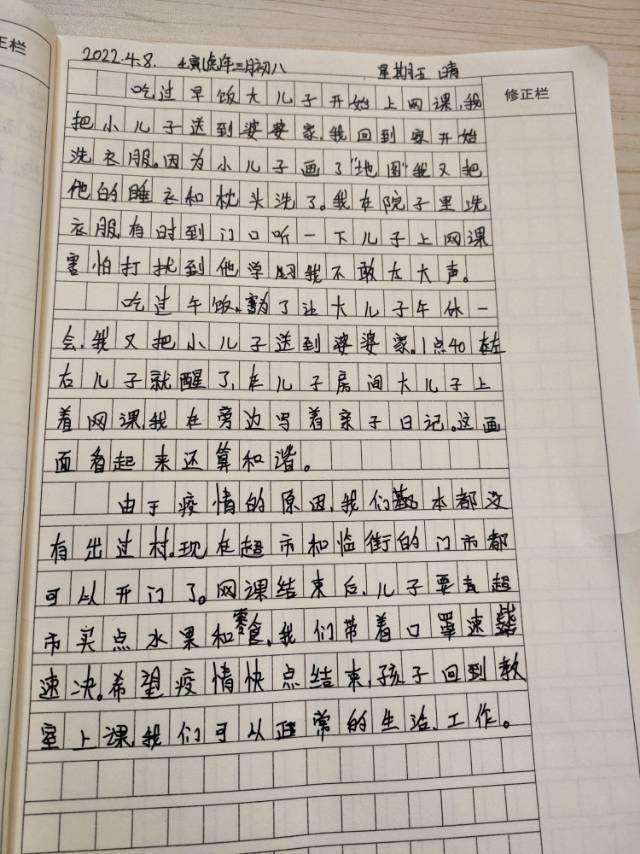 正栏
2022.4.8. 壬寅虎年三月初八 星期五 晴
修正栏
吃过早饭大儿子开始上网课,我
把小儿子送到婆婆家.我回到家开始
洗衣服.因为小儿子画了"地图"我又把
他的睡衣和枕头洗了.我在院子里洗
衣服有时到门口听一下儿子上网课
害怕打扰到他学习我不敢太大声。
吃过午饭.为了让大儿子午休一
会.我又把小儿子送到婆婆家.1点40左
右儿子就醒了,在儿子房间大儿子上
着网课,我在旁边写着亲子日记.这画
面看起来还算和谐。
由于疫情的原因,我们基本都没
有出过村.现在超市和临街的门市都
可以开门了。网课结束后,儿子要去超
市买点水果和零食,我们带着口罩速
速决.希望疫情快点结束,孩子回到教
室上课,我们可以正常的生活、工作。